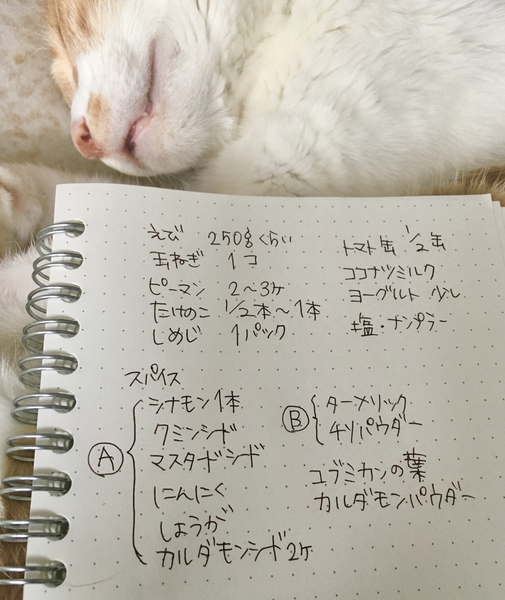 えび 250gくらい
玉ねぎ 1コ
ピーマン 2〜3ヶ
たけのこ 1/2本〜1本
しめじ 1パック
トマト缶 1/2缶
ココナツミルク
ヨーグルト 少し
塩・ナンプラー
スパイス
Ⓐ
シナモン1本
クミンシード
マスタードシード
にんにく
しょうが
カルダモンシード2ヶ
Ⓑ
ターメリック
チリパウダー
コブミカンの葉
カルダモンパウダー